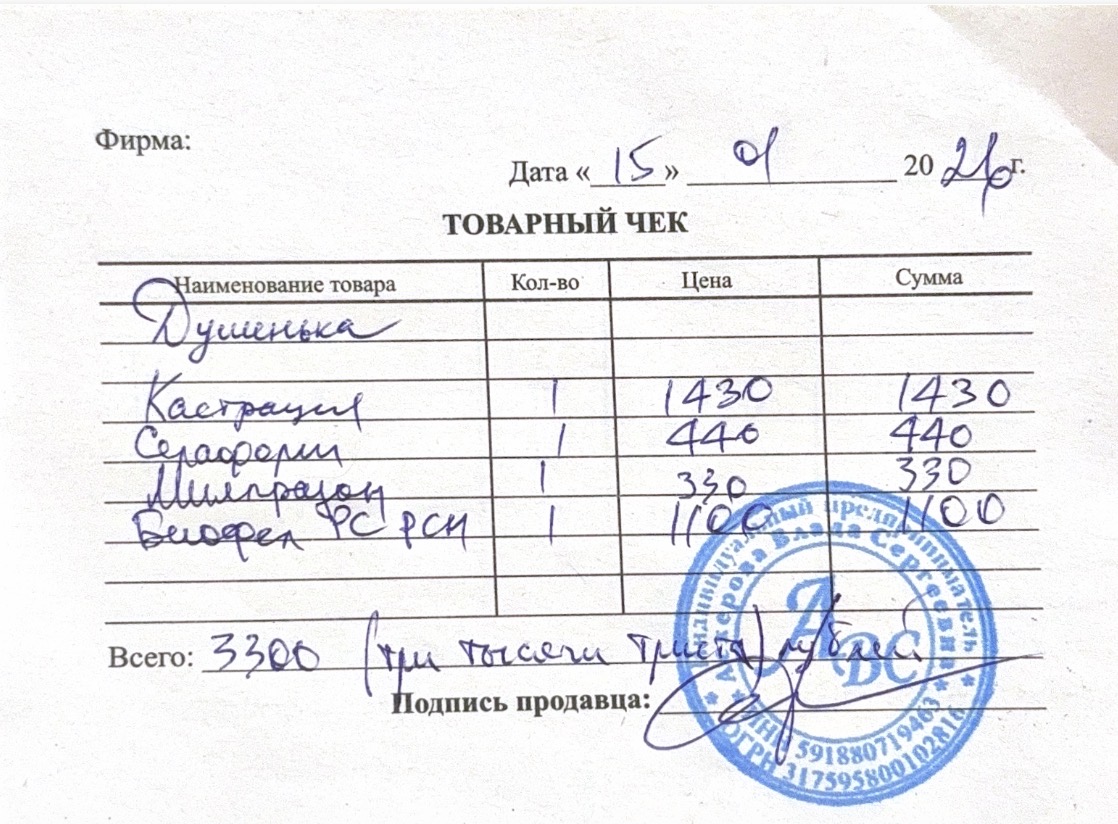 Фирма:
Дата «15» 01 2026 г.
ТОВАРНЫЙ ЧЕК
Наименование товара Кол-во Цена Сумма
Душенька
Кастрация 1 1430 1430
Сераформ 1 440 440
Милпразон 1 330 330
Биофел PC PCH 1 1100 1100
Всего: 3300 (три тысячи триста) рублей
Подпись продавца:
Индивидуальный предприниматель
Влада Сергеевна
АВС
ИНН 591880719463
ОГРН 317595800102816